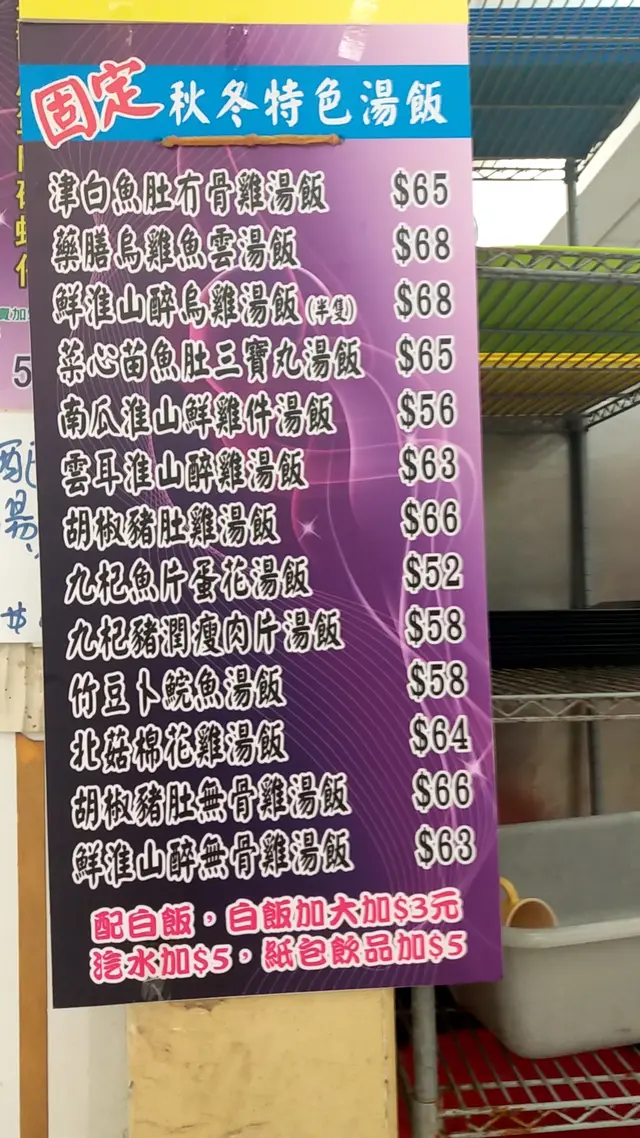 固定秋冬特色湯飯
津白魚肚冇骨雞湯飯 $65
藥膳烏雞魚雲湯飯 $68
鮮淮山醉烏雞湯飯(半隻) $68
菜心苗魚肚三寶丸湯飯 $65
南瓜淮山鮮雞件湯飯 $56
雲耳淮山醉雞湯飯 $63
胡椒豬肚雞湯飯 $66
九杞魚片蛋花湯飯 $52
九杞豬潤瘦肉片湯飯 $58
竹豆卜鯇魚湯飯 $58
北菇棉花雞湯飯 $64
胡椒豬肚無骨雞湯飯 $66
鮮淮山醉無骨雞湯飯 $63
配白飯，白飯加大加$3元
汽水加$5，紙包飲品加$5